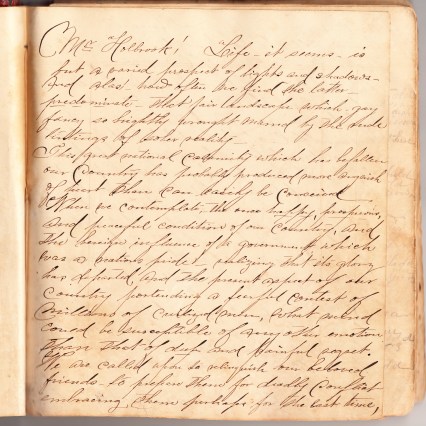 Mr Holbrook! Life - it seems - is
but a varied prospect of lights and shadows -
and alas! how often we find the latter
predominate. That fair landscape which gay
fancy so brightly wrought marred by the dark
tintings of sober reality.
This great national calamity which has befallen
our Country has probably produced more anguish
of heart than can easily be conceived
When we contemplate, the once happy, prosperous,
and peaceful condition of our Country, and
the benign influence of a government which
was a nations pride: realizing that its glory
has departed, and the present aspect of our
country portending a fearful contest of
millions of men, what mind
could be susceptible of any other emotion
than that of deep and painful regret.
We are called upon to relinquish our beloved
friends - to prepare them for deadly conflict
embracing them perhaps for the last time,